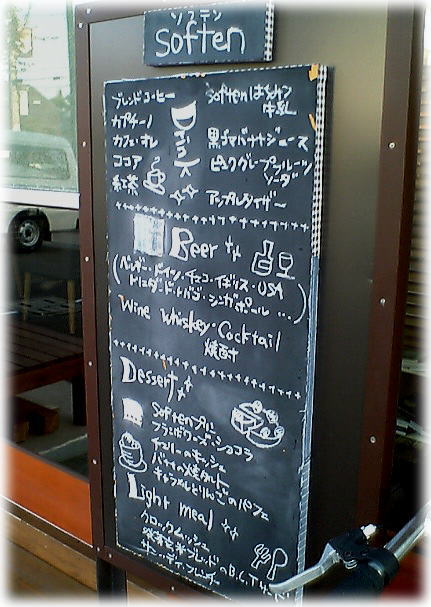 ソフテン
Soften
ブレンドコーヒー
カプチーノ
カフェ・オレ
ココア
紅茶
softenは
牛乳
黒ゴマバナナジュース
ピンクグレープフルーツ
ソーダ
アップルタイザー
Beer
(ベルギー・ドイツ・チェコ・イギリス・USA
トリニダード・トバゴ・シンガポール ...)
Wine Whiskey・Cocktail
焼酎
Dessert
Softenプリン
フランボワーズ・ショコラ
チェリーのキッシュ
バナナの焼タルト
キャラメルとりんごのパフェ
Light meal
クロックムッシュ